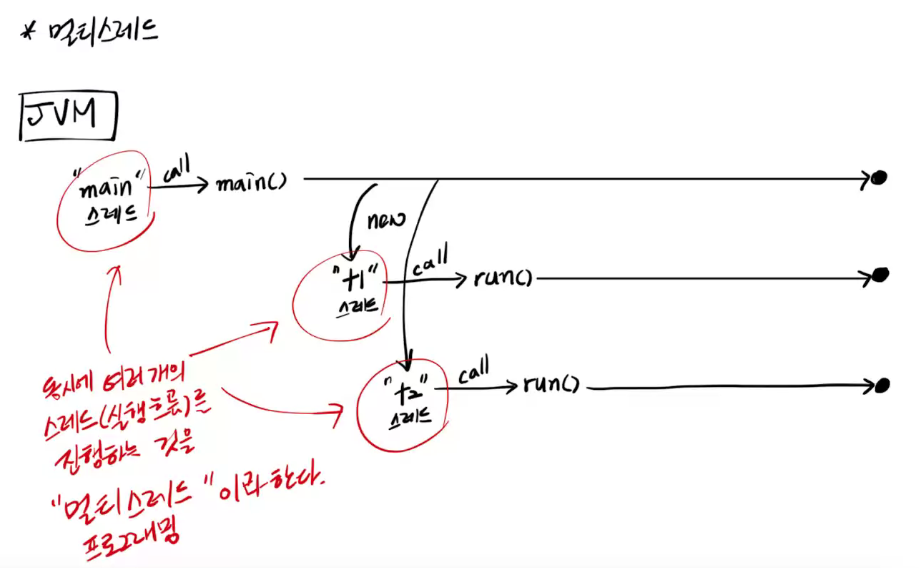 * 멀티스레드
JVM
"main" call main()
스레드
new
"t1" call run()
스레드
"t2" call run()
스레드
동시에 여러 개의
스레드(실행흐름)를
진행하는 것을
"멀티스레드"이라 한다.
프로그래밍